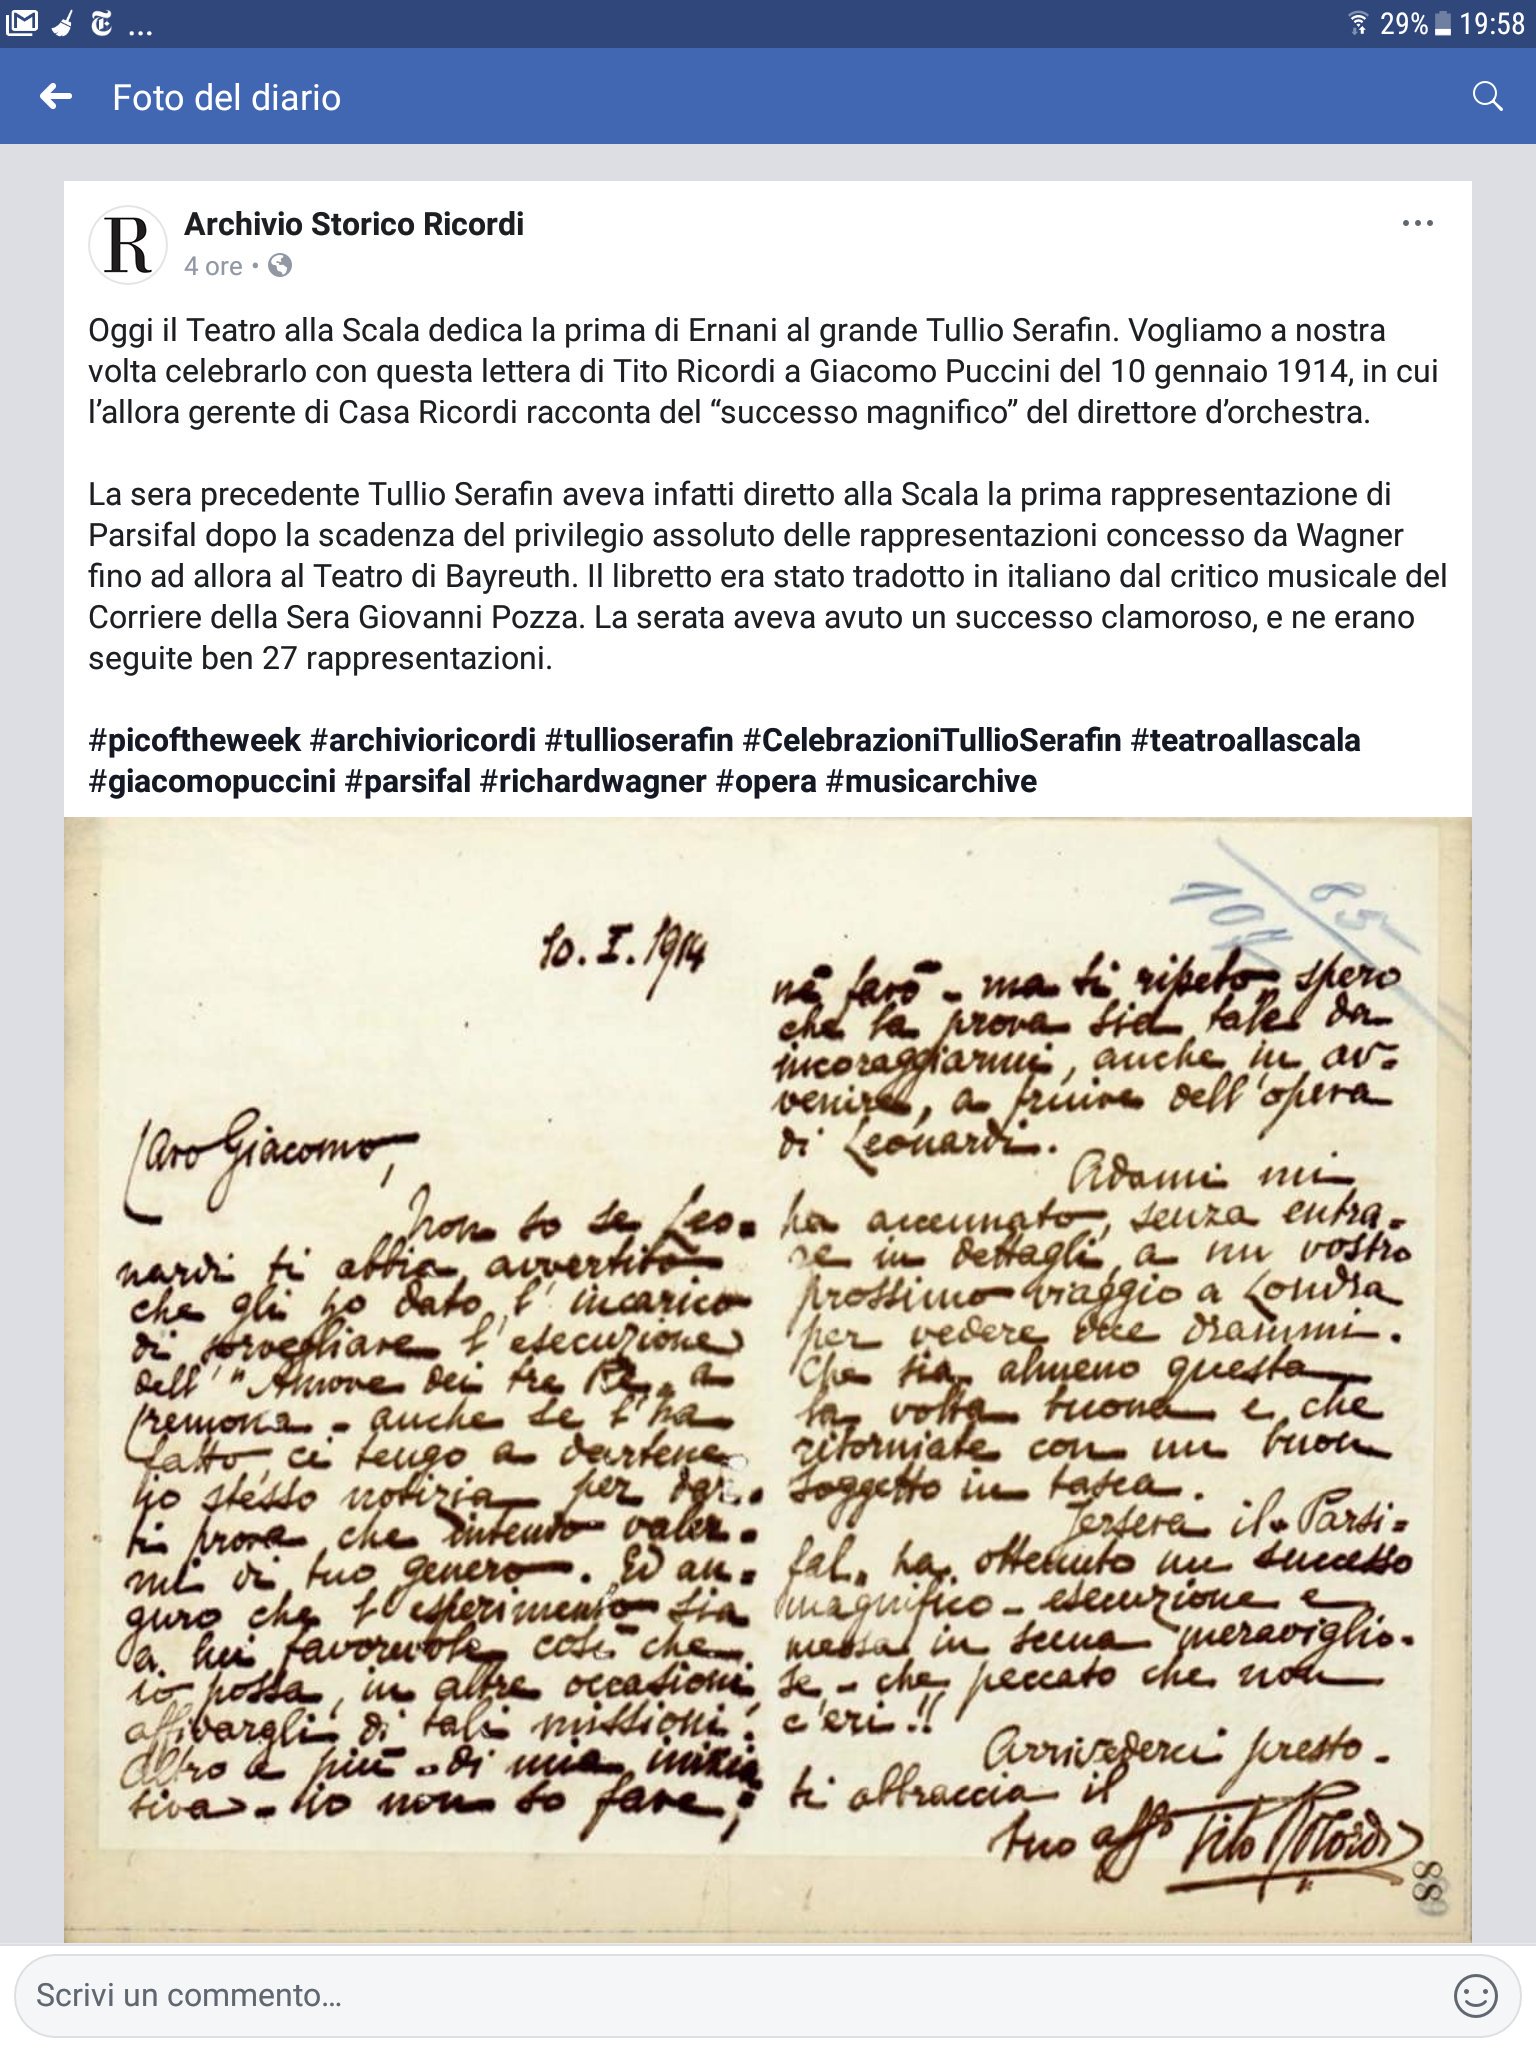 ...
29%
19:58
Foto del diario
R
Archivio Storico Ricordi
4 ore •
Oggi il Teatro alla Scala dedica la prima di Ernani al grande Tullio Serafin. Vogliamo a nostra
volta celebrarlo con questa lettera di Tito Ricordi a Giacomo Puccini del 10 gennaio 1914, in cui
l’allora gerente di Casa Ricordi racconta del “successo magnifico” del direttore d’orchestra.
La sera precedente Tullio Serafin aveva infatti diretto alla Scala la prima rappresentazione di
Parsifal dopo la scadenza del privilegio assoluto delle rappresentazioni concesso da Wagner
fino ad allora al Teatro di Bayreuth. Il libretto era stato tradotto in italiano dal critico musicale del
Corriere della Sera Giovanni Pozza. La serata aveva avuto un successo clamoroso, e ne erano
seguite ben 27 rappresentazioni.
#picoftheweek #archivioricordi #tullioserafin #CelebrazioniTullioSerafin #teatroallascala
#giacomopuccini #parsifal #richardwagner #opera #musicarchive
10.I.1914
Caro Giacomo,
Non so se Leo=
nardi ti abbia avvertito
che gli ho dato l'incarico
di sorvegliare l'esecuzione
dell'"Amore dei tre Re" a
Cremona - anche se l'ha
fatto, ci tengo a dartene
io stesso notizia per dar=
ti prova che intendo valer=
mi di tuo genero. Ed au=
guro che l'esperimento sia
a lui favorevole così che
io possa, in altre occasioni,
affibbiargli di tali missioni.
Altro e più - di mia inizia
tiva - io non so fare,
nè farò - ma ti ripeto spero
che la prova sia tale da
incoraggiarmi, anche in av=
venire, a fruire dell'opera
di Leonardi.
Adami mi
ha accennato, senza entra=
re in dettagli, a un vostro
prossimo viaggio a Londra
per vedere due drammi.
Che sia almeno questa
la volta buona e che
ritorniate con un buon
soggetto in tasca.
Jersera il "Parsi=
fal" ha ottenuto un successo
magnifico - esecuzione e
messa in scena meraviglio=
se - che peccato che non
c'eri!!
Arrivederci presto -
ti abbraccia il
tuo aff° Tito Ricordi
88
Scrivi un commento...